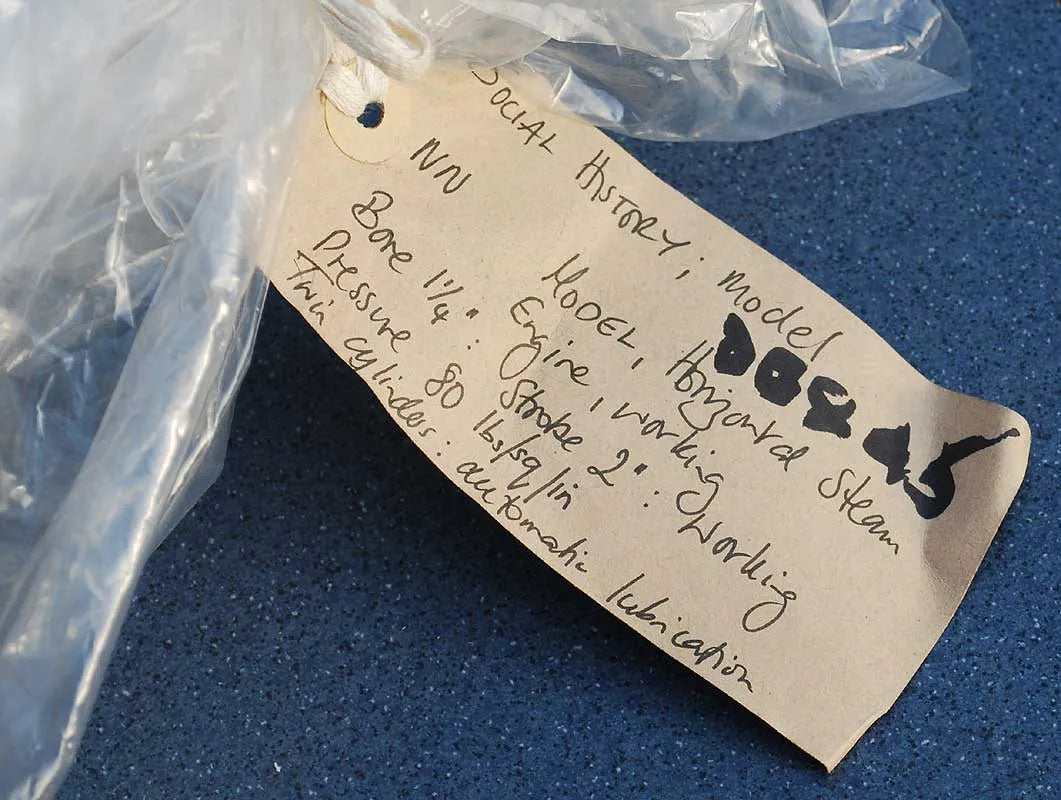 SOCIAL HISTORY; Model
NN
MODEL, Horizontal Steam
Engine, working
Bore 1¼": Stroke 2": Working
Pressure 80 lbs/sq/in
Twin cylinders: automatic lubrication